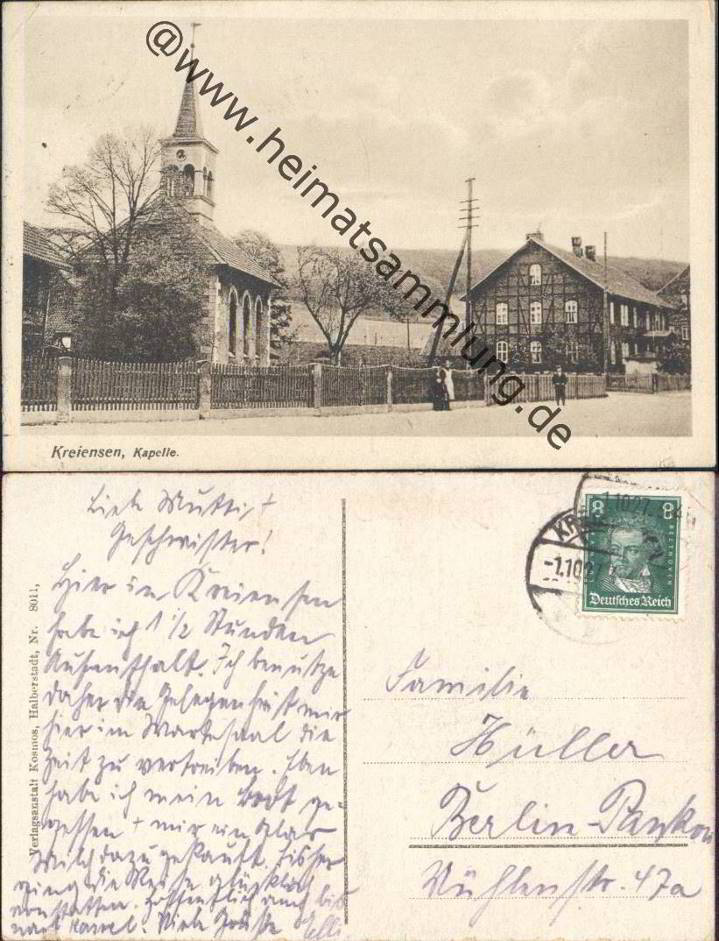 @www.heimatsammlung.de
Kreiensen, Kapelle.
Liebe Mutti, +
Geschwister!
Hier in Kreiensen
habe ich 1 1/2 Stunden
Aufenthalt. Ich benutze
daher die Gelegenheit mir
hier im Wartesaal die
Zeit zu vertreiben. Eben
habe ich mein Brot ge-
gessen + mir ein Glas
Milch dazu gekauft. Bisher
ging die Reise glücklich
von statten. Hoffentlich auch bis
nach Kassel. Viele Grüße Elli
Verlagsanstalt Kosmos, Halberstadt, Nr. 8011,
8 8
Deutsches Reich
-1.10.27
Familie
Müller
Berlin-Pankow
Mühlenstr. 47a